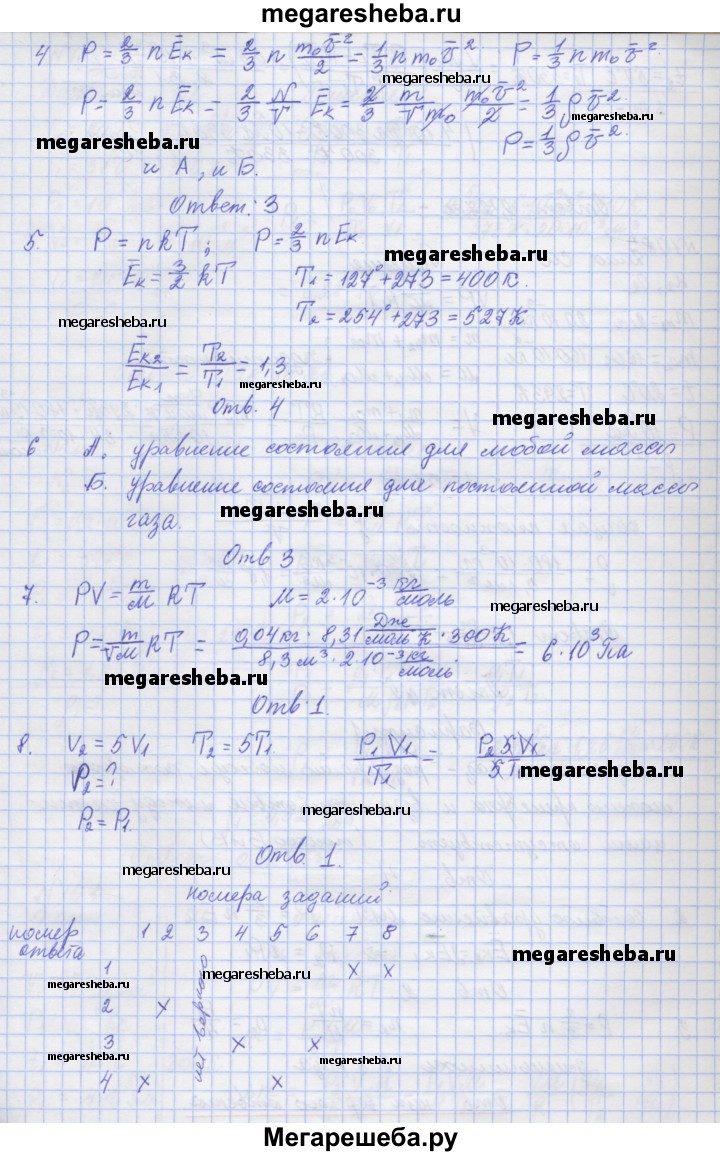 megaresheba.ru
4 P = 2/3 n Ēк = 2/3 n m₀v̄²/2 = 1/3 n m₀ v̄². P = 1/3 n m₀ v̄².
megaresheba.ru
P = 2/3 n Ēк = 2/3 N/V Ēк = 2/3 m/Vm₀ m₀v̄²/2 = 1/3 ρ v̄².
megaresheba.ru
megaresheba.ru
P = 1/3 ρ v̄².
и А, и Б.
megaresheba.ru
Ответ: 3
5. P = nkT; P = 2/3 n Eк.
megaresheba.ru
Ēк = 3/2 kT T₁ = 127° + 273 = 400 К.
megaresheba.ru
T₂ = 254° + 273 = 527 К
Ēк2/Eк1 = T₂/T₁ = 1,3.
megaresheba.ru
Отв. 4
megaresheba.ru
6 А. уравнение состояния для любой массы
Б. уравнение состояния для постоянной массы
megaresheba.ru
газа.
Отв 3
7. PV = m/M RT M = 2·10⁻³ кг/моль
megaresheba.ru
P = m/VM RT = 0,04 кг · 8,31 Дж/моль К · 300 К / 8,3 м³ · 2·10⁻³ кг/моль = 6·10³ Па
megaresheba.ru
Отв. 1.
8. V₂ = 5V₁ T₂ = 5T₁ P₁ V₁/T₁ = P₂ 5V₁/5T₁
megaresheba.ru
P₂ = ?
P₂ = P₁.
megaresheba.ru
Отв. 1.
megaresheba.ru
номера заданий.
номер ответа 1 2 3 4 5 6 7 8
megaresheba.ru
1 х х
megaresheba.ru
megaresheba.ru
megaresheba.ru
2 х
нет верного
3 х х
megaresheba.ru
megaresheba.ru
4 х х
megaresheba.ru
Мегарешеба.ру